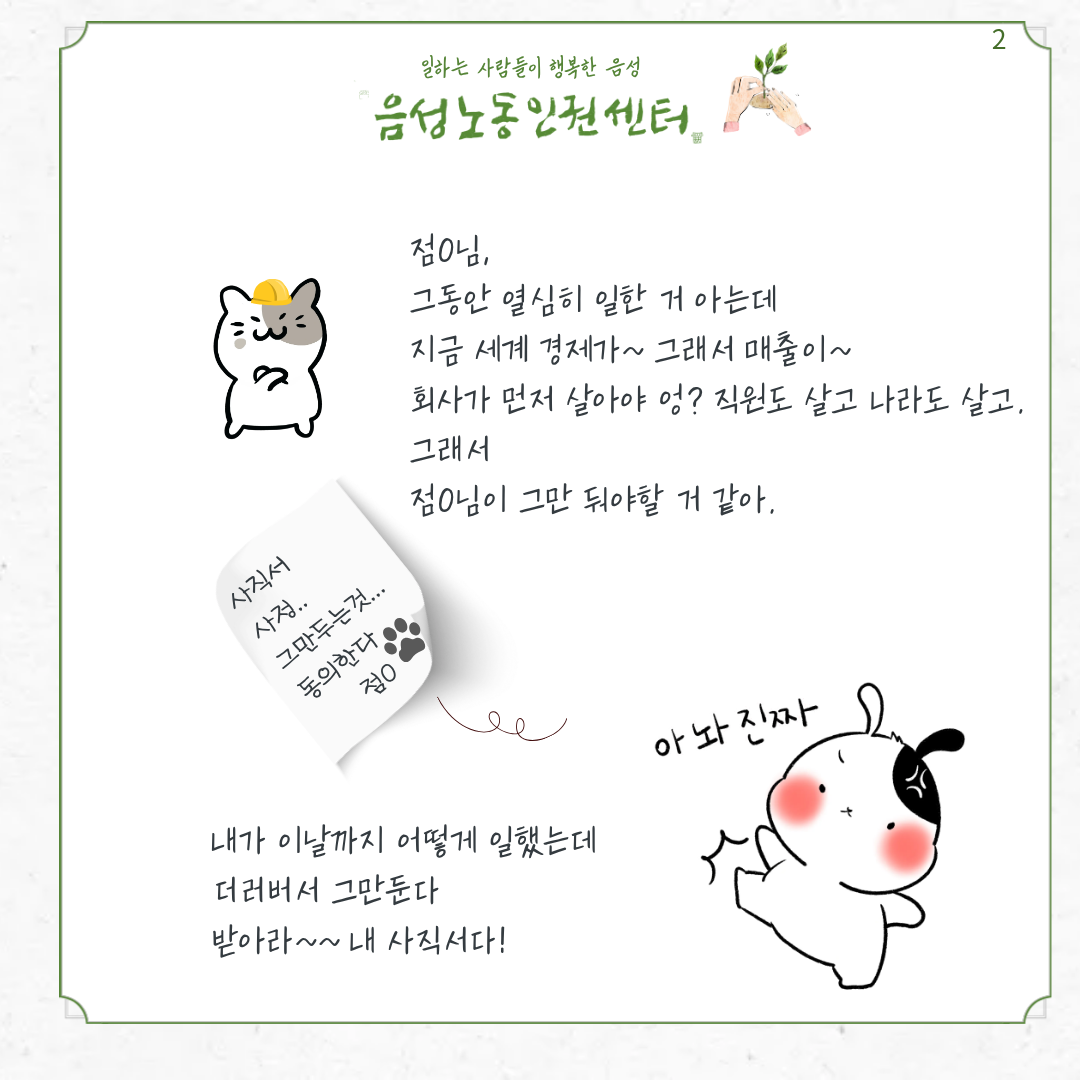 2
일하는 사람들이 행복한 음성
음성노동인권센터
점0님,
그동안 열심히 일한 거 아는데
지금 세계 경제가~ 그래서 매출이~
회사가 먼저 살아야 엉? 직원도 살고 나라도 살고.
그래서
점0님이 그만 둬야할 거 같아.
사직서
사정..
그만두는것...
동의한다
점0
아 놔 진짜
내가 이날까지 어떻게 일했는데
더러버서 그만둔다
받아라~~ 내 사직서다!